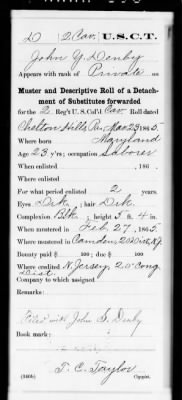 D | 2 Cav. | U.S.C.T.
John Y. Denby
Appears with rank of Private on
Muster and Descriptive Roll of a Detach-
ment of Substitutes forwarded
for the 2 Reg't U.S. Col'd Cav. Roll dated
Chelton Hills Pa. Mar 23, 1865.
Where born Maryland
Age 23 y'rs; occupation Laborer
When enlisted , 186 .
Where enlisted
For what period enlisted 2 years.
Eyes Drk.; hair Drk.
Complexion Blk.; height 5 ft. 4 in.
When mustered in Feb. 27, 1865
Where mustered in Camden, 20 Dist. N.J.
Bounty paid $ 100; due $ 100
Where credited N. Jersey, 2nd Cong.
Dist.
Company to which assigned
Remarks:
Filed with John S. Denby
Book mark:
T. C. Taylor
Copyist.